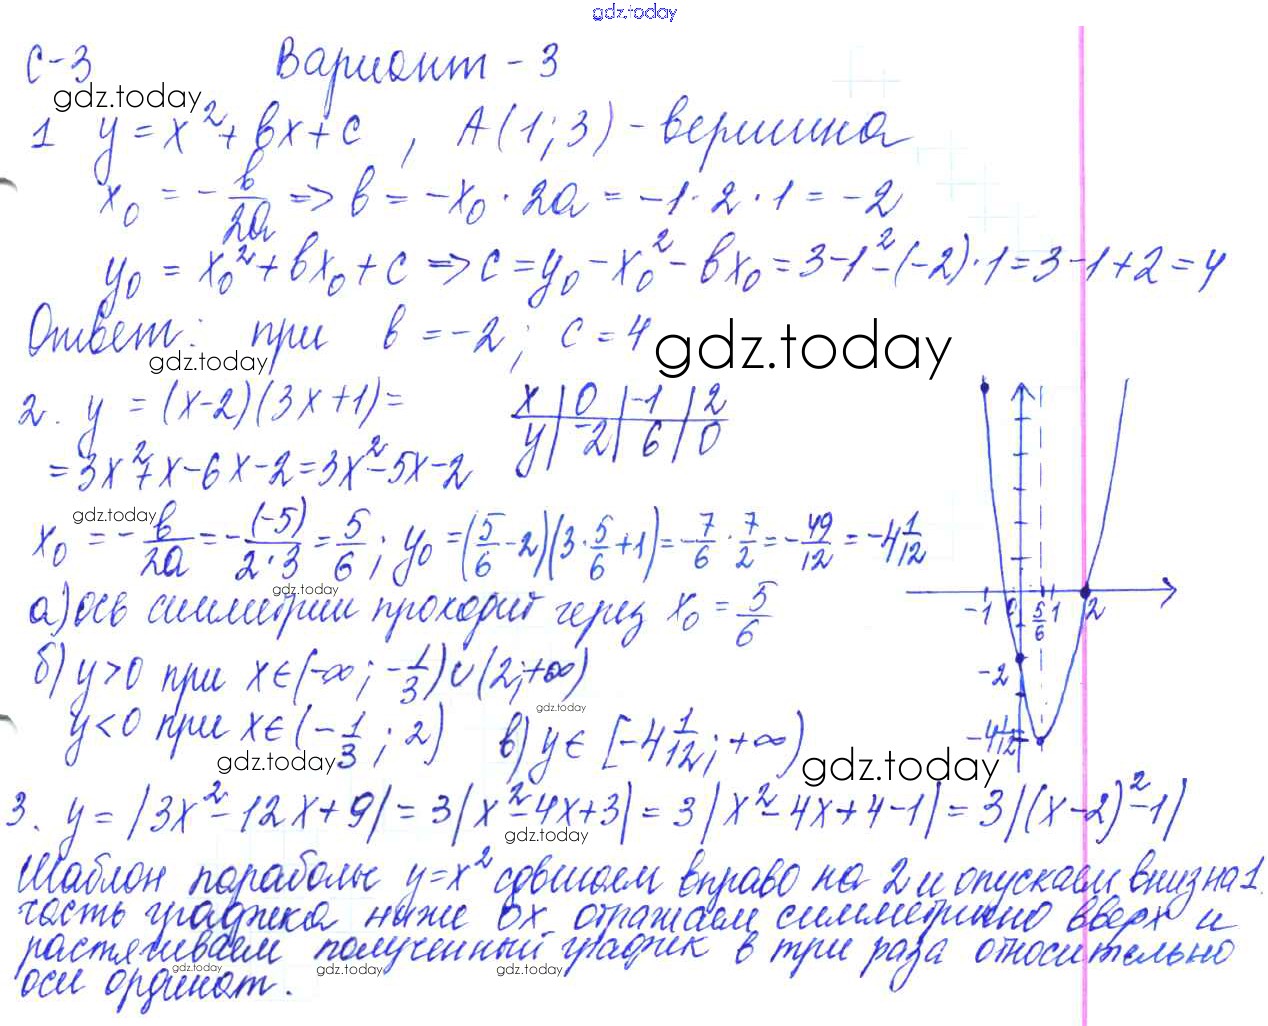 gdz.today
С-3 Вариант - 3
gdz.today
1 y = x² + bx + c , A(1; 3) - вершина
x₀ = -b/2a => b = -x₀ · 2a = -1 · 2 · 1 = -2
y₀ = x₀² + bx₀ + c => c = y₀ - x₀² - bx₀ = 3-1²-(-2)·1 = 3-1+2 = 4
Ответ: при b = -2; c = 4
gdz.today
gdz.today
2. y = (x-2)(3x+1) =
= 3x²+x-6x-2 = 3x²-5x-2
x | 0 | -1 | 2
y | -2 | 6 | 0
gdz.today
x₀ = -b/2a = -(-5)/2·3 = 5/6; y₀ = (5/6-2)(3·5/6+1) = -7/6·7/2 = -49/12 = -4 1/12
gdz.today
а) ось симметрии проходит через x₀ = 5/6
б) y>0 при x∈(-∞; -1/3)∪(2;+∞)
gdz.today
y<0 при x∈(-1/3; 2) в) y∈[-4 1/12; +∞)
gdz.today
gdz.today
-1 0 5/6 1 2
-2
-4 1/12
3. y = |3x²-12x+9| = 3|x²-4x+3| = 3|x²-4x+4-1| = 3|(x-2)²-1|
gdz.today
Шаблон параболы y=x² сдвигаем вправо на 2 и опускаем вниз на 1.
часть графика ниже Ox отражаем симметрично вверх и
растягиваем полученный график в три раза относительно
оси ординат.
gdz.today
gdz.today
gdz.today